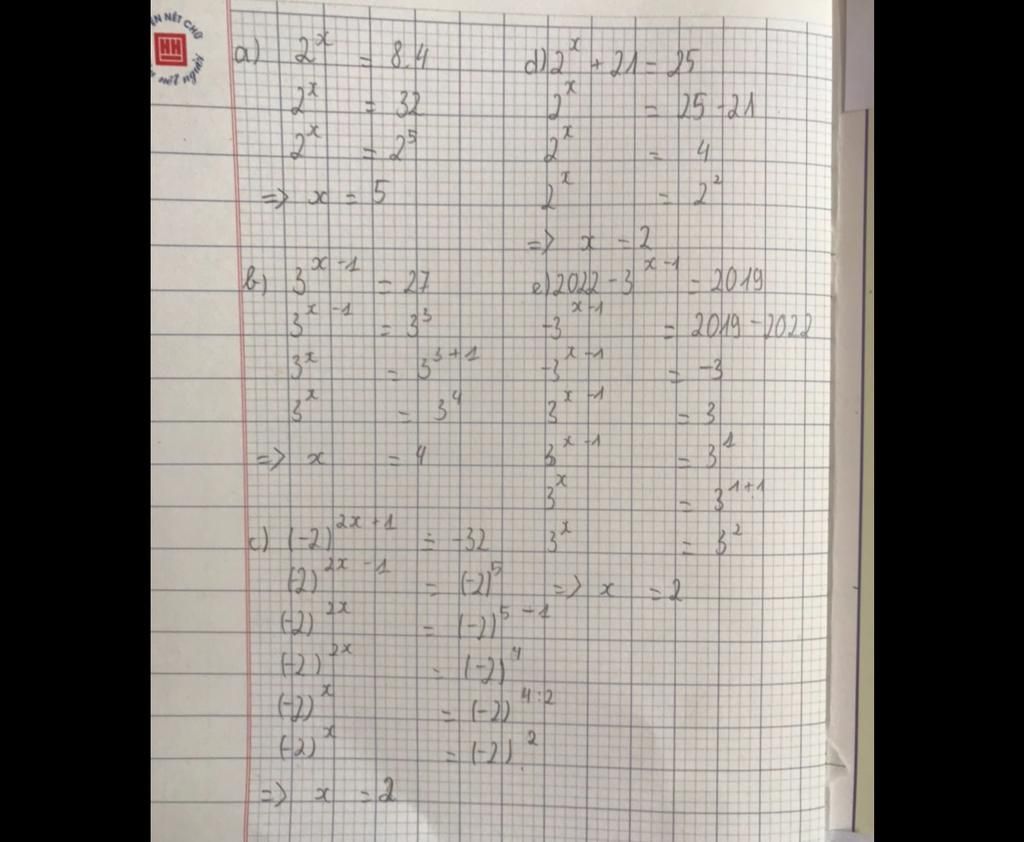 NÉT CHỮ
HH
nết người
a) 2^x = 8.4
2^x = 32
2^x = 2^5
=> x = 5
b) 3^{x-1} = 27
3^{x-1} = 3^3
3^x = 3^{3+1}
3^x = 3^4
=> x = 4
c) (-2)^{2x+1} = -32
(-2)^{2x-1} = (-2)^5
(-2)^{2x} = (-2)^{5-1}
(-2)^{2x} = (-2)^4
(-2)^x = (-2)^{4:2}
(-2)^x = (-2)^2
=> x = 2
d) 2^x + 21 = 25
2^x = 25 - 21
2^x = 4
2^x = 2^2
=> x = 2
e) 2022 - 3^{x-1} = 2019
-3^{x-1} = 2019 - 2022
-3^{x-1} = -3
3^{x-1} = 3
3^{x-1} = 3^1
3^x = 3^{1+1}
3^x = 3^2
=> x = 2